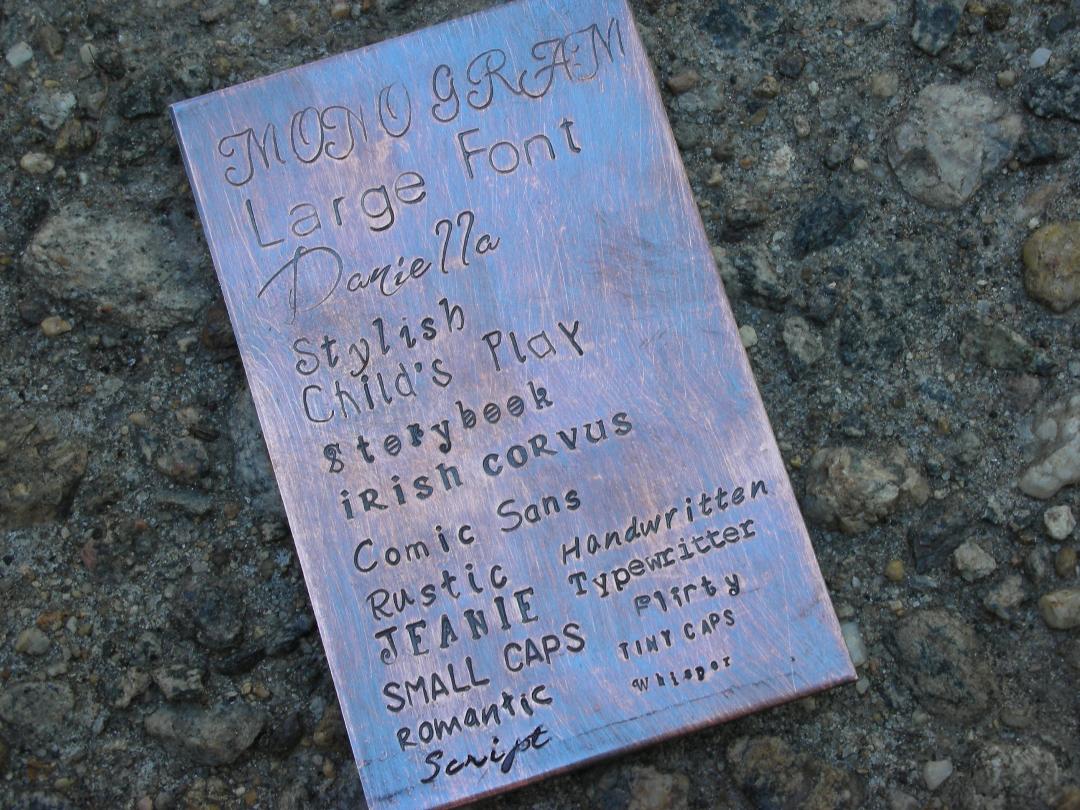 MONOGRAM
Large Font
Daniella
Stylish
Child's Play
Storybook
iRish CORVUS
Comic Sans
Rustic
JEANIE
SMALL CAPS
Romantic
Script
Handwritten
Typewritter
Flirty
TINY CAPS
Whisper